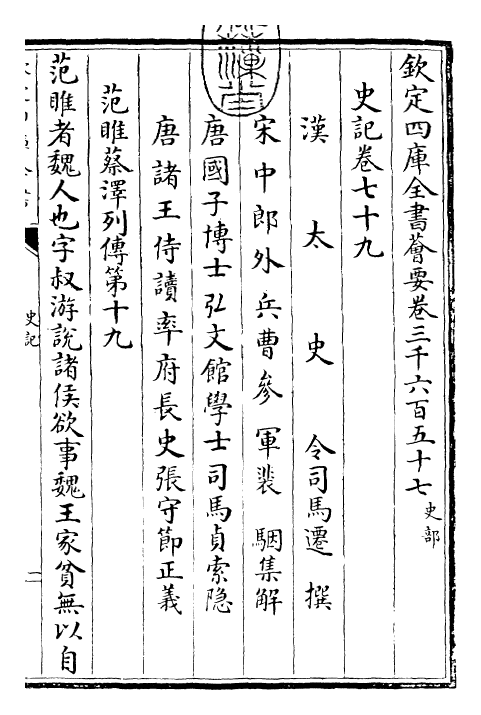 欽定四庫全書薈要卷三千六百五十七 史部
史記卷七十九
漢太史令司馬遷撰
宋中郎外兵曹參軍裴駰集解
唐國子博士弘文館學士司馬貞索隐
唐諸王侍讀率府長史張守節正義
范雎蔡澤列傳第十九
范雎者魏人也字叔游說諸侯欲事魏王家貧無以自
史記